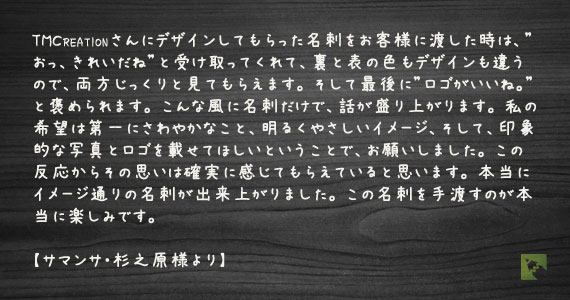 TMCREATIONさんにデザインしてもらった名刺をお客様に渡した時は、”
おっ、きれいだね”と受け取ってくれて、裏と表の色もデザインも違う
ので、両方じっくりと見てもらえます。そして最後に”ロゴがいいね。”
と褒められます。こんな風に名刺だけで、話が盛り上がります。私の
希望は第一にさわやかなこと、明るくやさしいイメージ、そして、印象
的な写真とロゴを載せてほしいということで、お願いしました。この
反応からその思いは確実に感じてもらえていると思います。本当に
イメージ通りの名刺が出来上がりました。この名刺を手渡すのが本
当に楽しみです。
【サマンサ・杉之原様より】